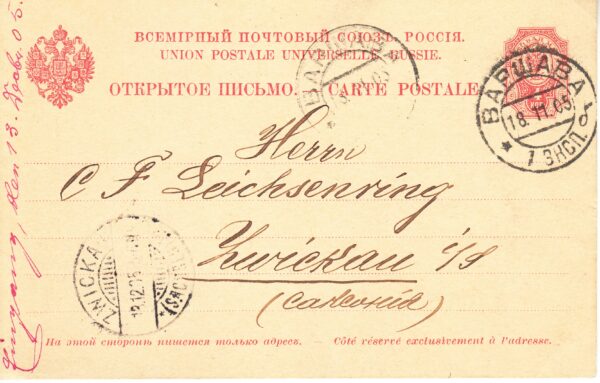 ВСЕМІРНЫЙ ПОЧТОВЫЙ СОЮЗЪ. РОССІЯ.
UNION POSTALE UNIVERSELLE. RUSSIE.
ОТКРЫТОЕ ПИСЬМО. — CARTE POSTALE.
ВАРШАВА
18.11.05
1 ЭКСП.
ВАРШАВА
Herrn
C F Leichsenring
Zwickau i/S
(Саксонія)
ZWICKAU
12.05
(SACHSEN)
den 13. 05.
На этой сторонѣ пишется только адресъ. — Côté réservé exclusivement à l'adresse.